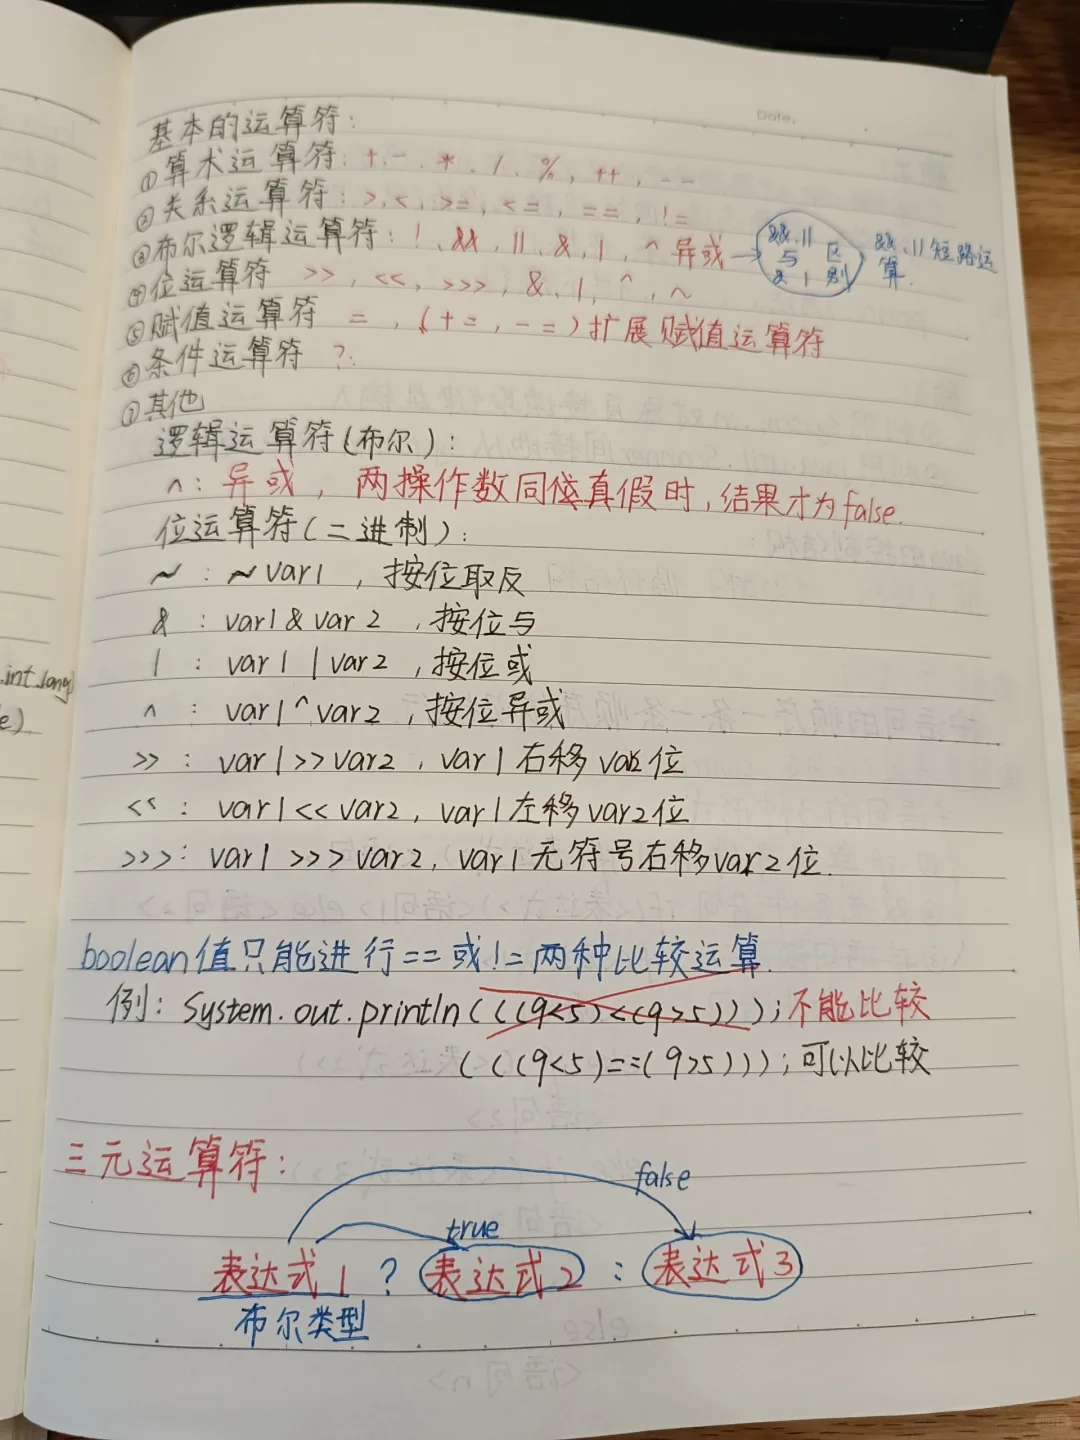 Date.
基本的运算符:
①算术运算符: + . - . * . / . % , ++ , --
②关系运算符: > , < , >= , <= , == , !=
③布尔逻辑运算符: ! , && , || , & , | , ^ 异或 → &&、|| 与 & | 区别 &&、|| 短路运算.
④位运算符 >> , << , >>> , & , | , ^ , ~
⑤赋值运算符 = , ( += , -= ) 扩展赋值运算符
⑥条件运算符 ?:
⑦其他
逻辑运算符(布尔):
^: 异或, 两操作数同真假时, 结果才为false.
位运算符(二进制):
~ : ~var1 , 按位取反
& : var1 & var2 , 按位与
| : var1 | var2 , 按位或
^ : var1 ^ var2 , 按位异或
>> : var1 >> var2 , var1右移var2位
<< : var1 << var2 , var1左移var2位
>>> : var1 >>> var2, var1无符号右移var2位.
boolean值只能进行==或!=两种比较运算.
例: System.out.println(((9<5)<(9>5))); 不能比较
(((9<5)==(9>5))); 可以比较
三元运算符:
false
true
表达式1 ? 表达式2 : 表达式3
布尔类型
.int.long)
e).